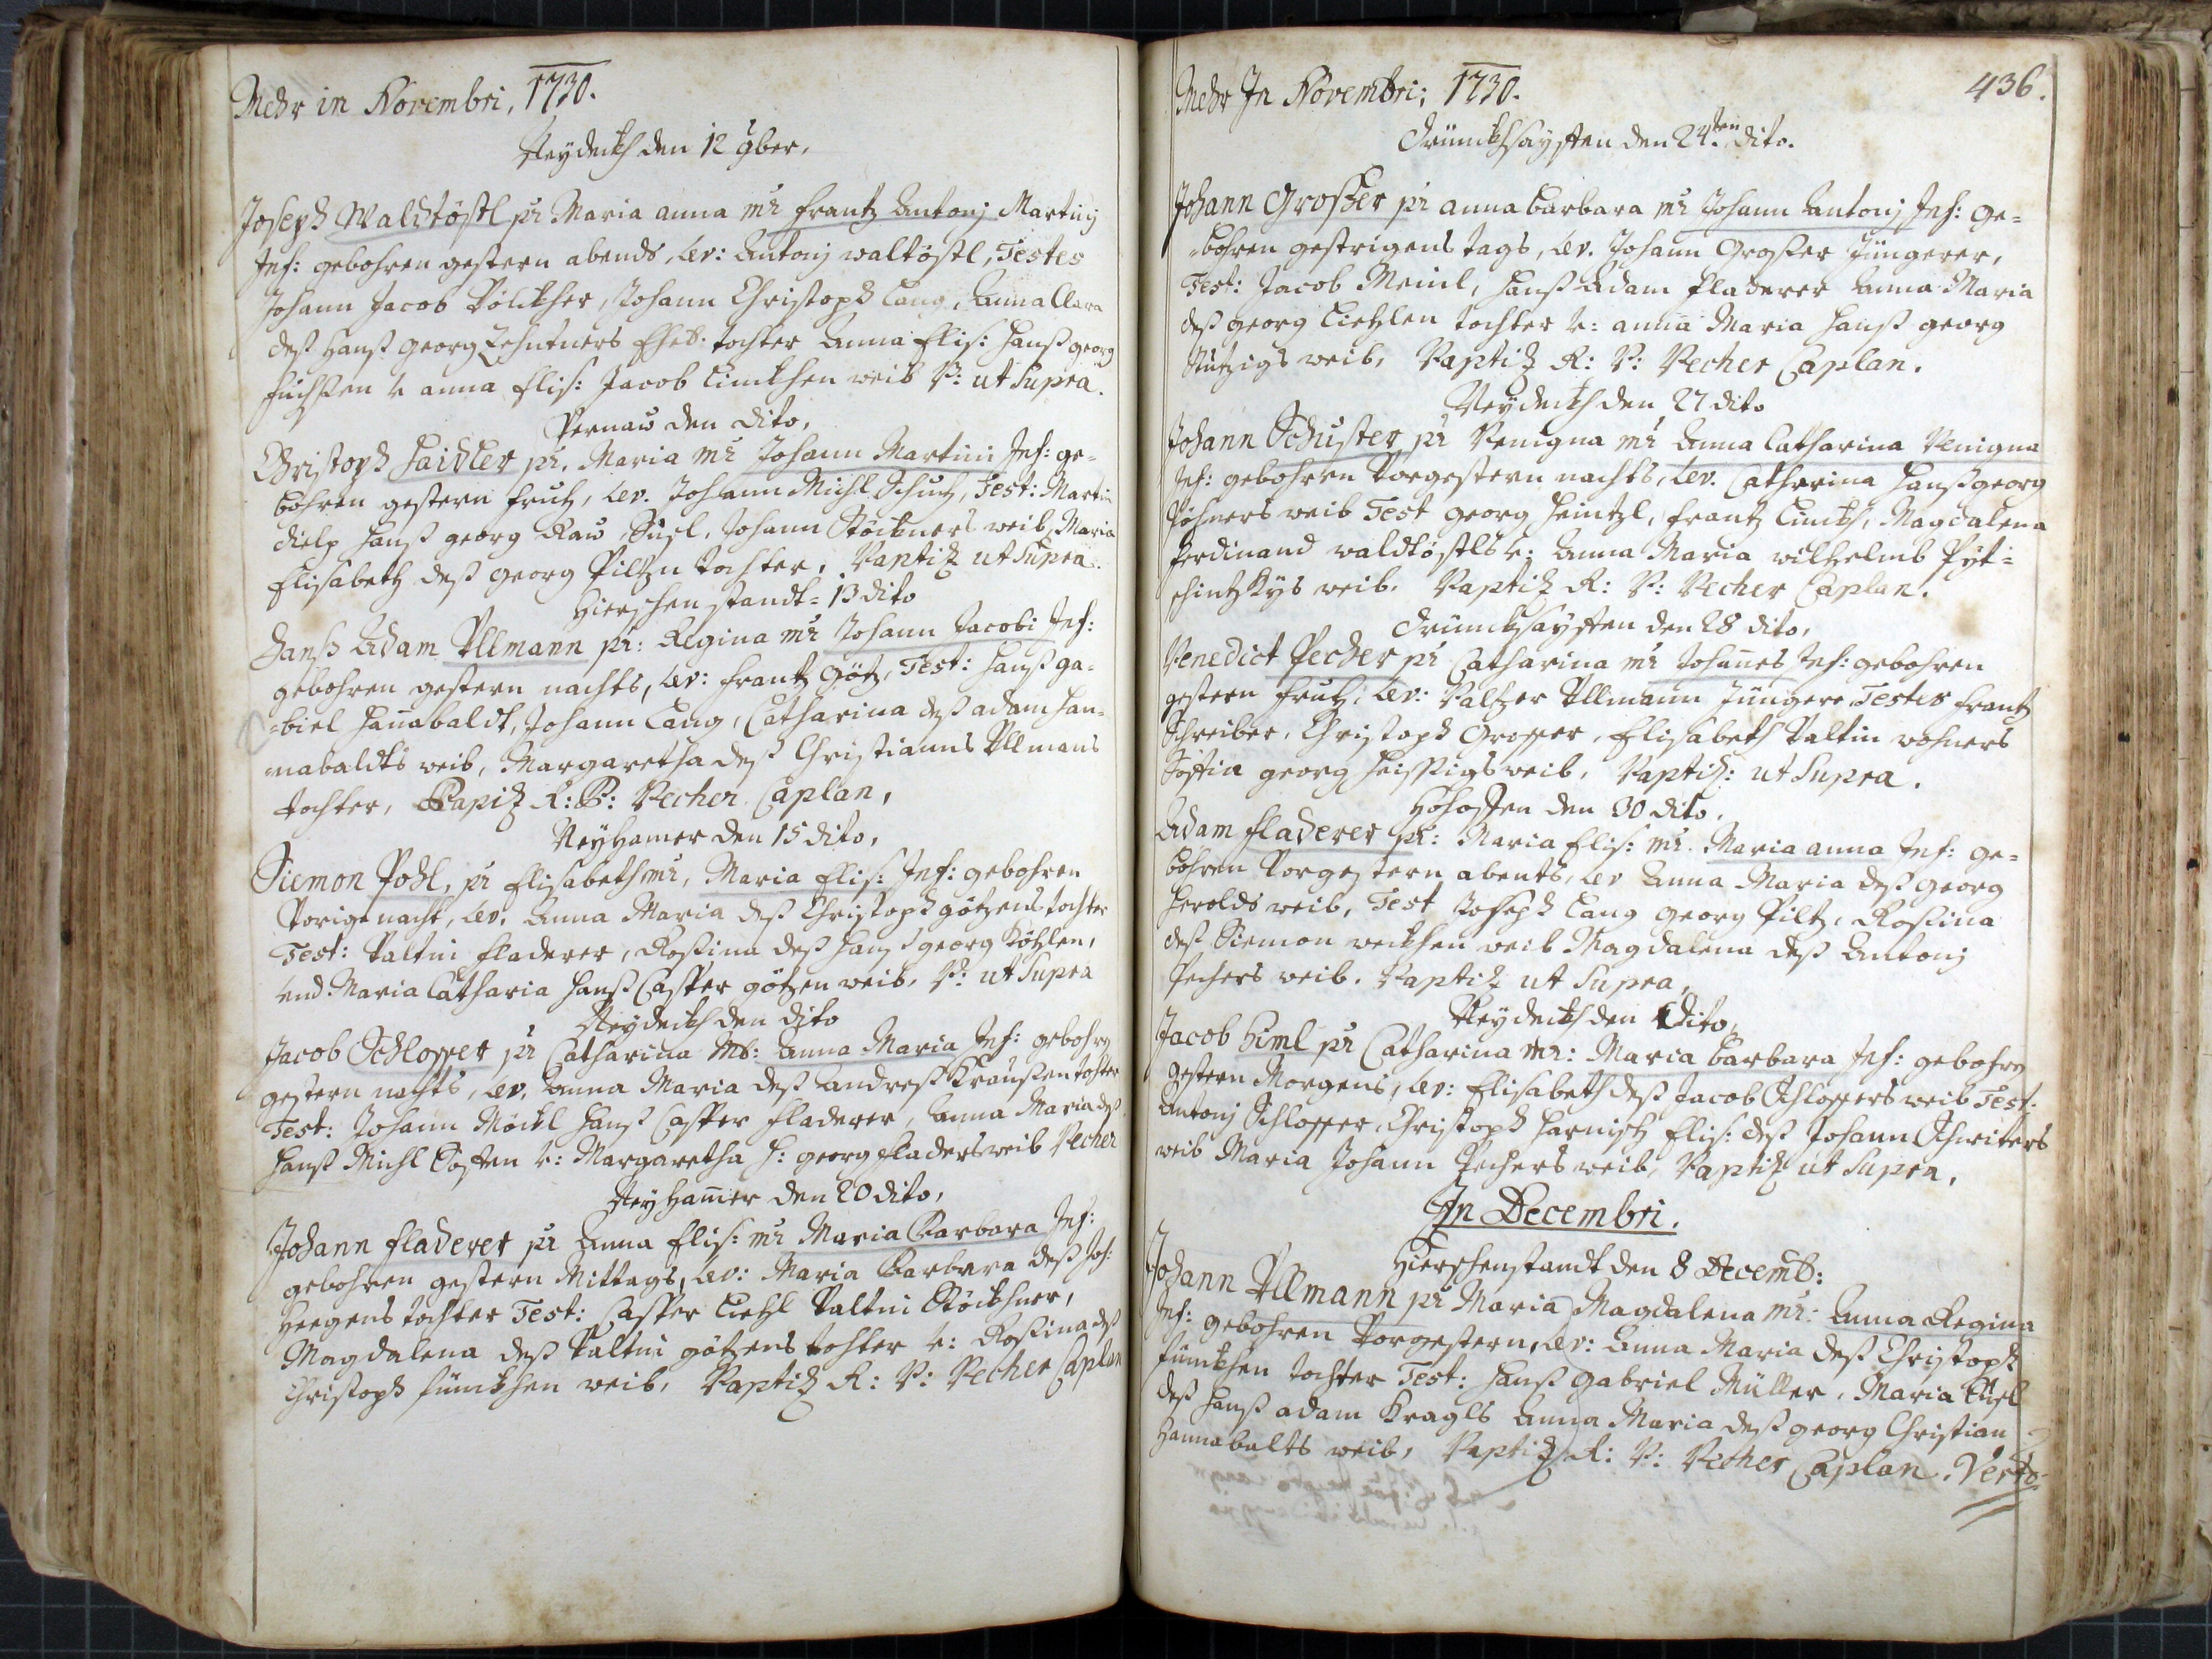 Mehr in Novembri, 1730.
Neydeckh den 12 9ber,
Joseph Waldtöstl pr Maria anna mr Frantz Antonj Martinj
Inf: gebohren gestern abends, Lev: Antonj waltöstl, Testes
Johann Jacob Pölckher, Johann Christoph Lang, Anna Clara
deß Hanß Georg Zehntners Tochter Anna Elis: Hanß georg
Fuchsen v anna Elis: Jacob weib P: ut Supra.
Pernau den dito,
Christoph Haidler pr. Maria mr Johann Martini Inf: ge-
bohren gestern fruh, Lev. Johann Michl Schuch, Test: Martin
Hanß georg Rau, Susl. Johann Stöckners weib, Maria
Elisabeth deß georg Piltzn tochter, Baptiz ut Supra.
Hierschenstandt 13 dito
Hanß Adam Ullmann pr: Regina mr Johann Jacobi Inf:
gebohren gestern nachts, Lev: Frantz Götz, Test: Hanß ga-
-briel Hanabaldt, Johann Lang, Catharina deß adam Han-
-nabaldts weib, Margaretha deß Christianns Ullmans
tochter, Bapiz R: P: Pecher Caplan,
Neyhamer den 15 dito,
Siemon Pohl, pr Elisabeth mr, Maria Elis: Inf: gebohren
Vorige nacht, Lev. Anna Maria deß Christoph götzens tochter
Test: Valtin Fladerer, Rosina deß Hanß georg Köhlen,
und Maria Catharia Hanß Casper götzen weib, P: ut Supra
Neydeckh den dito
Jacob Schlosser pr Catharina Mr: Anna Maria Inf: gebohrn
gestern nachts, Lev. Anna Maria deß Andreß Kraußen tochter
Test: Johann Möckl Hanß Casper Fladerer, Anna Maria deß
Hanß Michl v: Margaretha H: georg Fladers weib Pecher
Neyhamer den 20 dito,
Johann Fladerer pr Anna Elis: mr Maria Barbara Inf:
gebohren gestern Mittags, Lev: Maria Barbara deß Joh:
Heegens tochter Test: Casper Liehl Valtin Stöckhner,
Magdalena deß Valtin götzens tochter v: Rosina deß
Christoph Fünckhen weib, Baptiz R: P: Pecher Caplan
Mehr In Novembri; 1730. 436.
den 24ten dito.
Johann Grosser pr anna barbara mr Johann Antonj Inf: ge-
-bohren gestrigens tags, Lev. Johann Grosser Jüngerer,
Test: Jacob Meinl, Hanß Adam Fladerer Anna Maria
deß georg Liehlen tochter v: anna Maria Hanß georg
Stützigs weib, Baptiz R: P: Pecher Caplan.
Neydeckh den 27 dito
Johann Schuster pr Benigna mr Anna Catharina Benigna
Inf: gebohren Vorgestern nachts, Lev. Catharina Hanß georg
Pöhners weib Test georg Heintzl, Frantz Magdalena
Ferdinand waldtöstls v: Anna Maria wilhelmb
weib. Baptiz R: P: Pecher Caplan.
den 28 dito,
Benedict Pecher pr Catharina mr Johannes Inf: gebohren
gestern fruh, Lev: Baltzer Ullmann Jüngere Testes Frantz
Schreiber, Christoph Grosser, Elisabeth Valtin wohners
georg weib, Baptiz: ut Supra.
Hohofen den 30 dito,
Adam Fladerer pr: Maria Elis: mr. Maria anna Inf: ge-
bohren Vorgestern abents, Lev Anna Maria deß georg
Herolds weib, Test Joseph Lang georg Piltz, Rosina
deß Siemon weib Magdalena deß Antonj
Pechers weib. Baptiz ut Supra,
Neydeckh den dito,
Jacob Himl pr Catharina mr: Maria barbara Inf: gebohrn
gestern Morgens, Lev: Elisabeth deß Jacob Schlossers weib Test:
Antonj Schlosser, Christoph Harnisch Elis: deß Johann
weib Maria Johann Pechers weib, Baptiz ut Supra,
In Decembri.
Hierschenstandt den 8 Decemb:
Johann Ullmann pr Maria Magdalena mr: Anna Regina
Inf: gebohren Vorgestern, Lev: Anna Maria deß Christoph
Fünckhen tochter Test: Hanß Gabriel Müller, Maria
deß Hanß adam Kragls Anna Maria deß georg Christian
Hannabalts weib, Baptiz R: P: Pecher Caplan. Verte